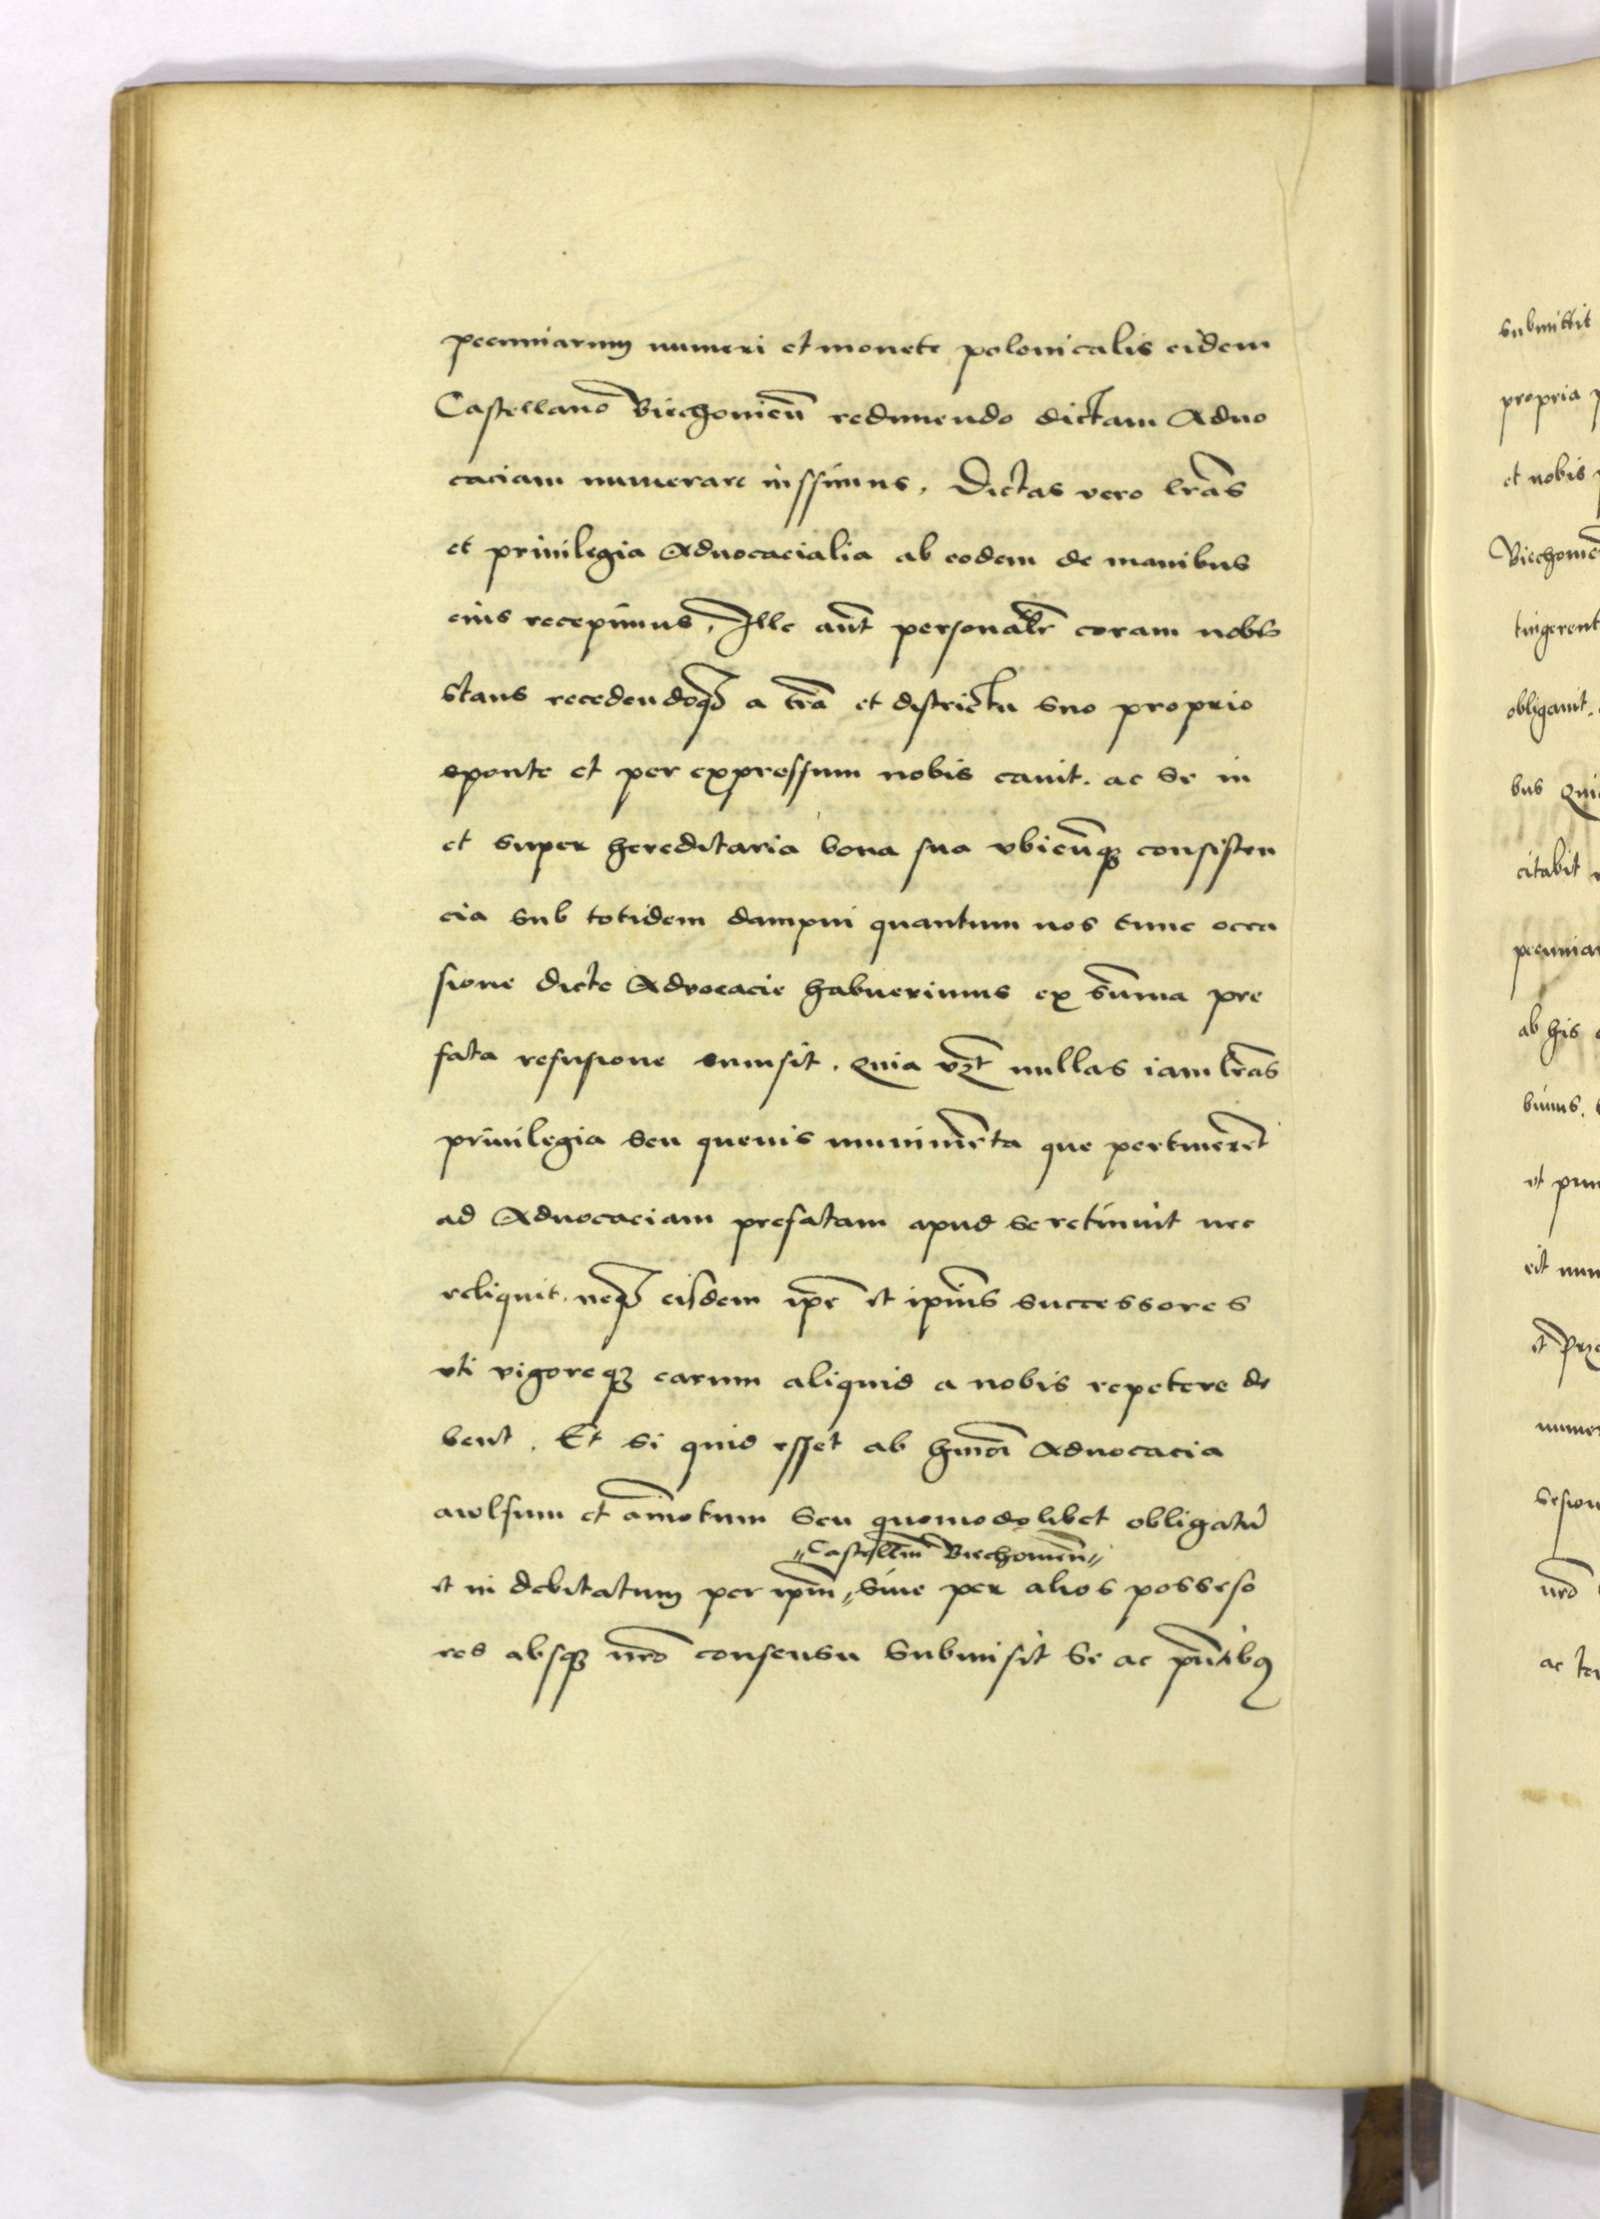 pecuniarum numeri et monete polonicalis eidem
Castellano Viechonieñ redimendo dictam Aduo
caciam numerare iussimus. Dictas vero lr̃as
et priuilegia Aduocacialia ab eodem de manibus
eius recepimus. Ille aut̃ personalr̃ coram nobis
stans recedendoq̃ a tr̃a et districtu suo proprio
sponte et per expressum nobis cauit. ac se in
et super hereditaria bona sua vbicũq3 consisten
cia sub totidem dampni quantum nos tunc occa
sione dicte Advocacie habuerimus ex sũma pre
fata refusione summisit. Quia vz̃ nullas iam lr̃as
priuilegia seu queuis munimẽta que pertinerẽt
ad Aduocaciam prefatam apud se retinuit nec
reliquit. neq̃ eisdem ip̃e et ipĩus successores
vti vigoreq3 earum aliquid a nobis repetere de
bent. Et si quid esset ab hm̃oi Aduocacia
awlsum et am̃otum seu quomodolibet obligatũ
"Castellm̃ Viechonieñ"
et in debitatum per ip̃m "siue per alios possesso
res absq3 nr̃o consensu submisit se ac p̃ntibꝰ
submittit
propria
et nobis
Viechonie
tingerent
obligauit.
bus Qui
citabit
pecuniar
ab his
bimus.
et
eit num
et
numer
nr̃o
ac